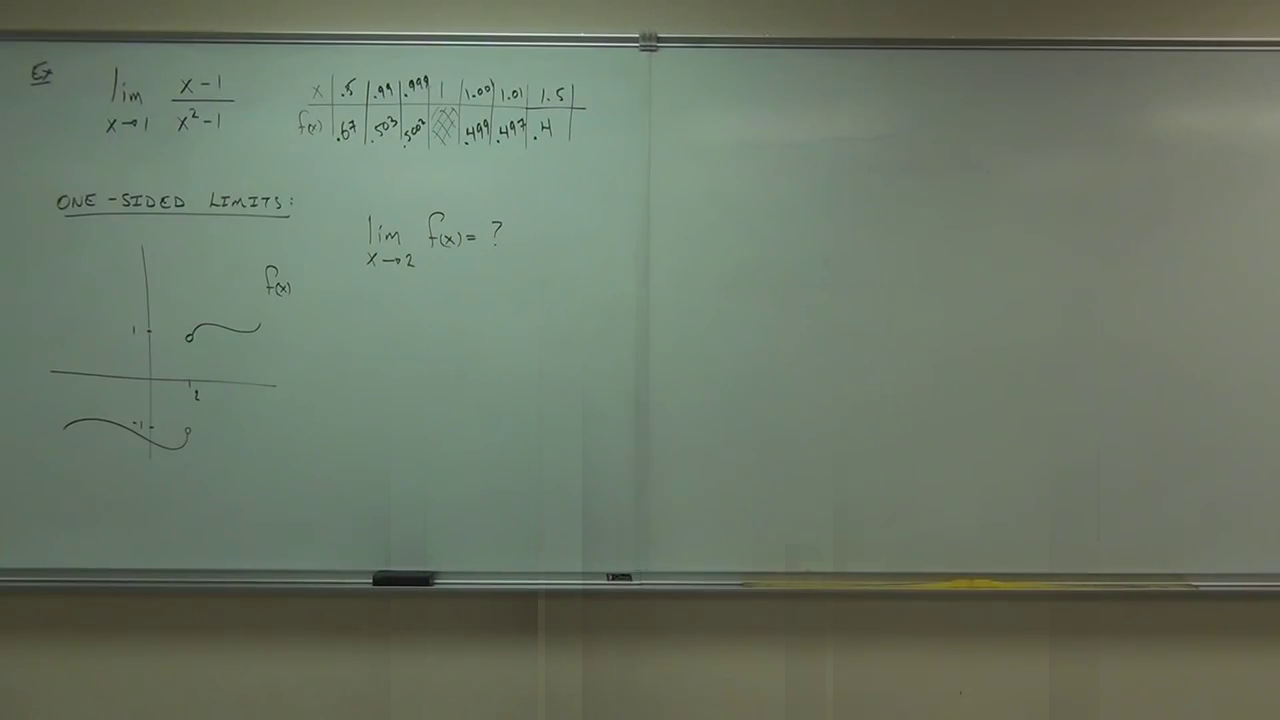 Ex lim x→1 x-1 / x²-1
x | .5 | .99 | .999 | 1 | 1.001 | 1.01 | 1.5 |
f(x) | .67 | .503 | .5003 | | .499 | .497 | .4 |
ONE-SIDED LIMITS:
lim x→2 f(x) = ?
f(x)
1
2
-1